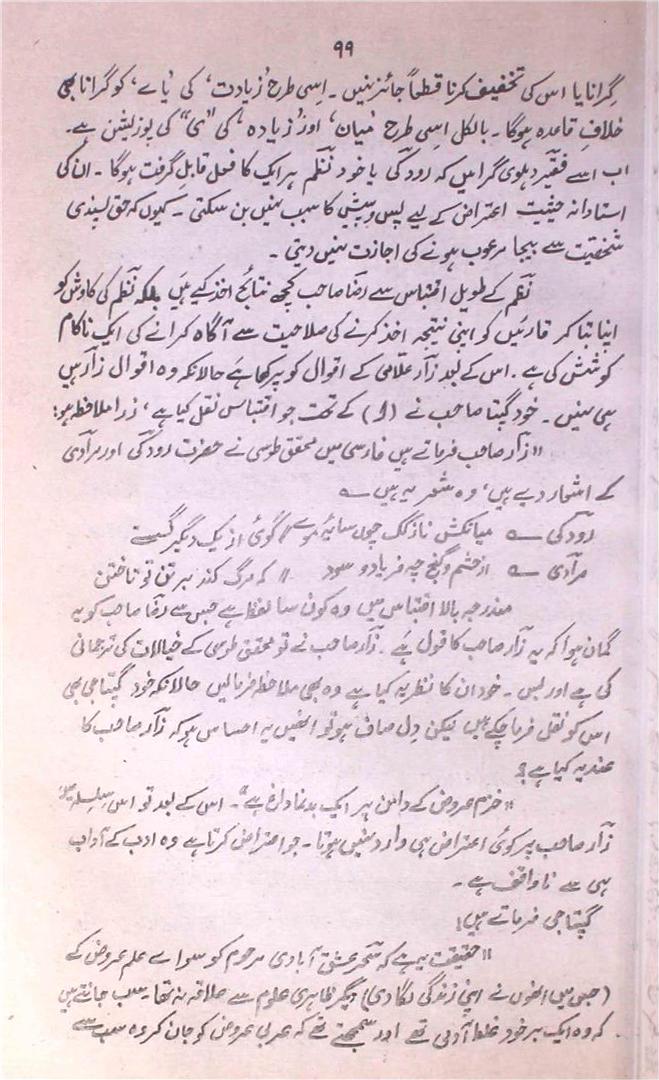 ۹۹
گرانا یا اس کی تخفیف کرنا قطعاً جائز نہیں ۔ اسی طرح ’زیادت‘ کی ’یا‘ے‘ کو گرانا بھی
خلافِ قاعدہ ہوگا ۔ بالکل اسی طرح ’میان‘ اور ’زیادہ‘ کی "ی" کی پوزیشن ہے۔
اب اسے فقیر دہلوی گرائیں کہ رودکی یا خود نظم ہر ایک کا فعل قابلِ گرفت ہوگا ۔ ان کی
استادانہ حیثیت اعتراض کے لیے پس و پیش کا سبب نہیں بن سکتی ۔ کیوں کہ حق پسندی
شخصیت سے بیجا مرعوب ہونے کی اجازت نہیں دیتی ۔
نظم کے طویل اقتباس سے رضا صاحب کچھ نتائج اخذ کیے ہیں بلکہ نظم کی کاوش کو
اپنا بتا کر قارئیں کو اپنی نتیجہ اخذ کرنے کی صلاحیت سے آگاہ کرانے کی ایک ناکام
کوشش کی ہے . اس کے بعد زار علامی کے اقوال کو پرکھا ہے حالانکہ وہ اقوال زار ہیں
ہی نہیں ۔ خود گپتا صاحب نے (1) کے تحت جو اقتباس نقل کیا ہے ، ذرا ملاحظہ ہو:
"زار صاحب فرماتے ہیں فارسی میں محقق طوسی نے حضرت رودکی اور مرادی
کے اشعار دیے ہیں، وہ شعر یہ ہیں ؎
رودکی ؎ میانکش نازکک چوں سایۂ موے / گوئی از یک دیگر گسستے
مرادی ؎ از حشم و گنج چہ فریاد و سود // کہ مرگ کند بر تن تو تاختن
مندرجہ بالا اقتباس میں وہ کون سا لفظ ہے جس سے رضا صاحب کو یہ
گمان ہوا کہ یہ زار صاحب کا قول ہے . زار صاحب نے تو محقق طوسی کے خیالات کی ترجمانی
کی ہے اور بس ۔ خود ان کا نظریہ کیا ہے وہ بھی ملاحظہ فرمالیں حالانکہ خود گپتا جی بھی
اس کو نقل فرما چکے ہیں لیکن دِل صاف ہو تو انھیں یہ احساس ہو کہ زار صاحب کا
عندیہ کیا ہے؟
"خرم عروض کے دامن پر ایک بدنما داغ ہے"۔ اس کے بعد تو اس سلسلہ میں
زار صاحب پر کوئی اعتراض ہی وارد نہیں ہوتا ۔ جو اعتراض کرتا ہے وہ ادب کے آداب
ہی سے ناواقف ہے ۔
گپتا جی فرماتے ہیں:
"حقیقت یہ ہے کہ سحر عشق آبادی مرحوم کو سواے علم عروض کے
(جس میں انھوں نے اپنی زندگی لگا دی) دیگر ظاہری علوم سے علاقہ نہ تھا ۔ سب جانتے ہیں
کہ وہ ایک بر خود غلط آدمی تھے اور سمجھتے تھے کہ عربی عروض کو جان کر وہ سب سے